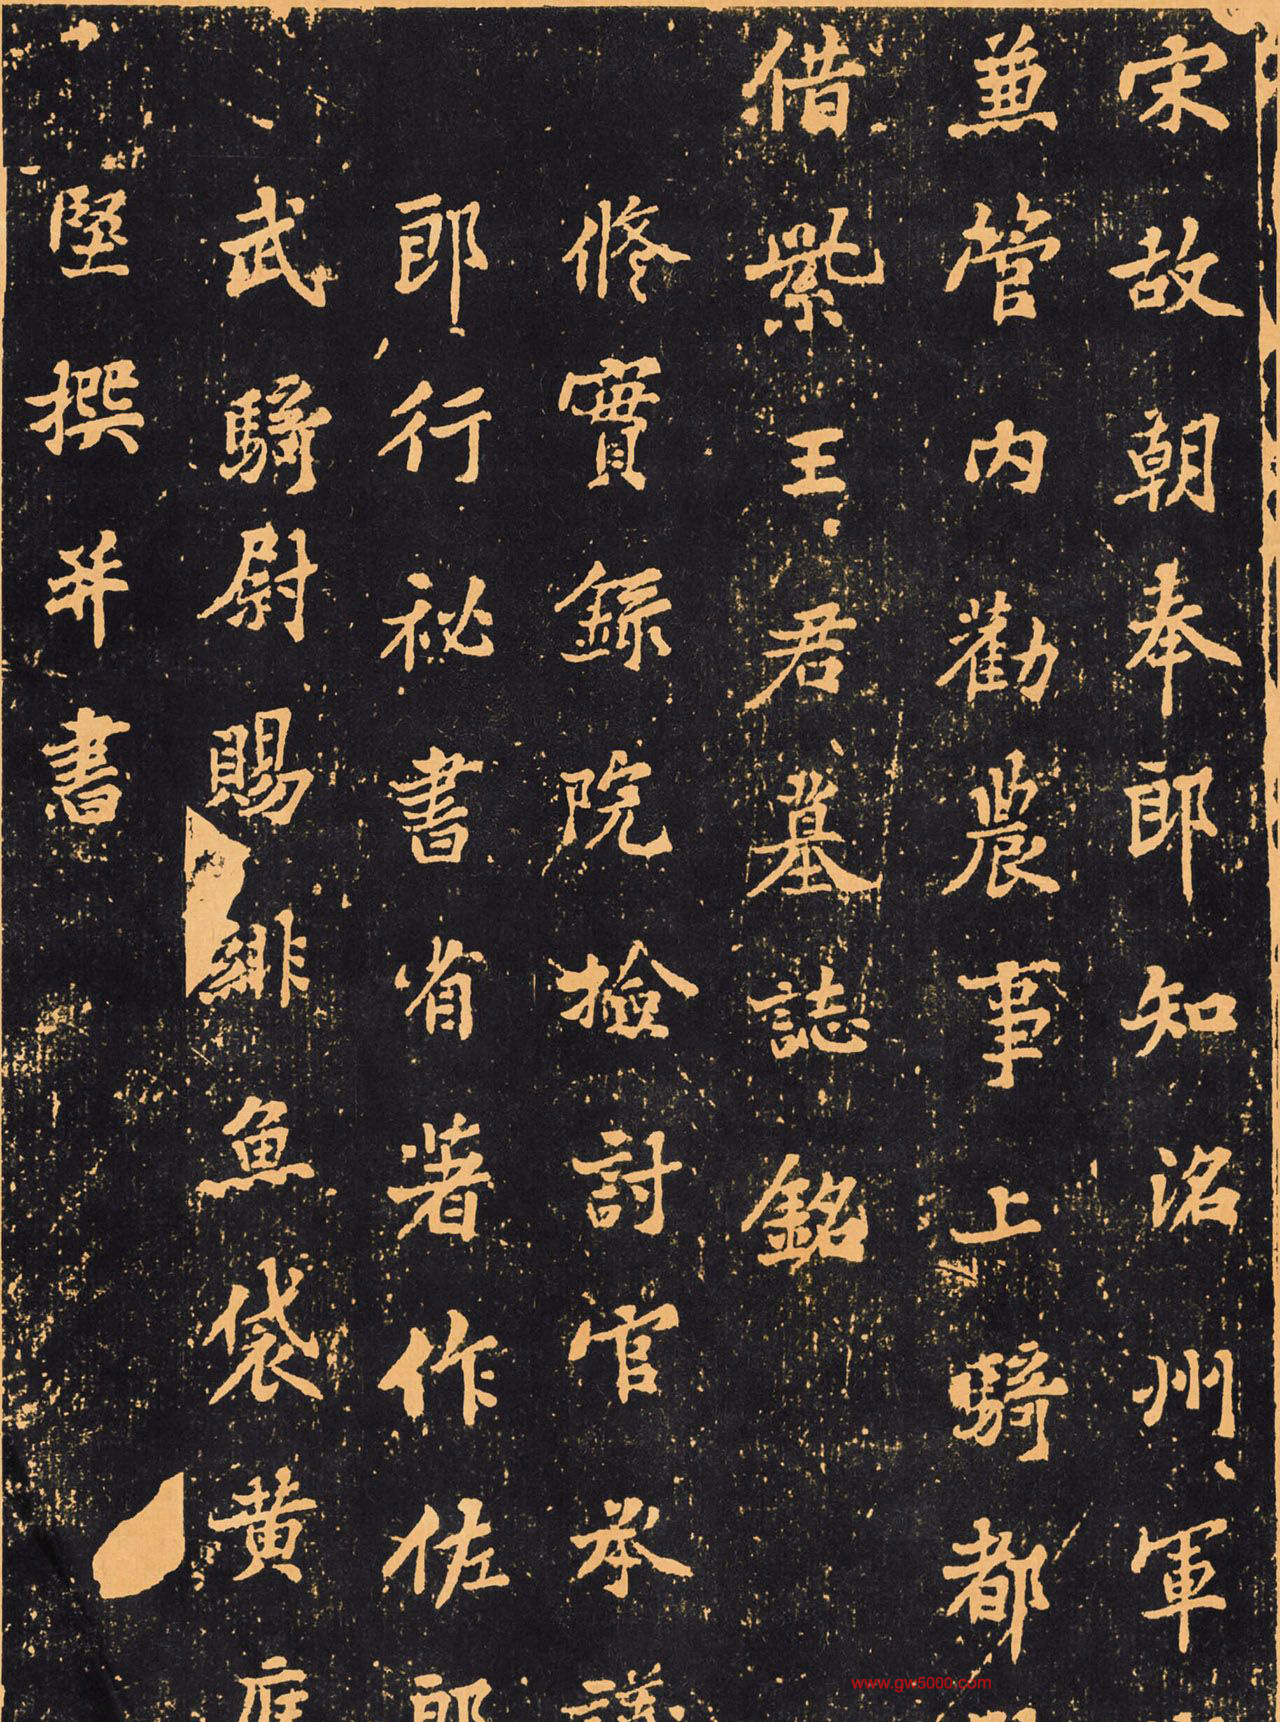 宋故朝奉郎知洺州軍
兼管内勸農事上騎都
借紫王君墓誌銘
脩實錄院撿討官承議
郎行祕書省著作佐郎
武騎尉賜緋魚袋黄庭
堅撰并書
www.gw5000.com